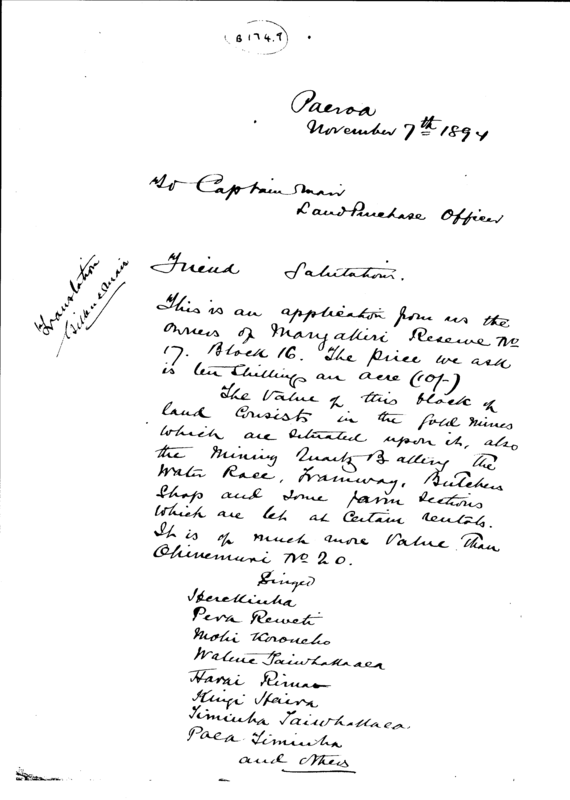 B 174.9
Paeroa
November 7th 1894
To Captain Mair
Land Purchase Officer
Translation
Friend Salutations.
This is an application from us the
owners of Reserve No
17. Block 16. The Price we ask
is ten Shillings an acre (10/-)
The Value of this block of
land Consists in the gold mines
which are situated upon it, also
the Mining Quartz Battery The
Water Race, Tramway, Butchers
Shop and some farm Sections
which are let at Certain rentals.
It is of much more Value Than
Ohinemuri No 20.
Singed
Pera Reweti
Harai
Kingi
Paea
and Others